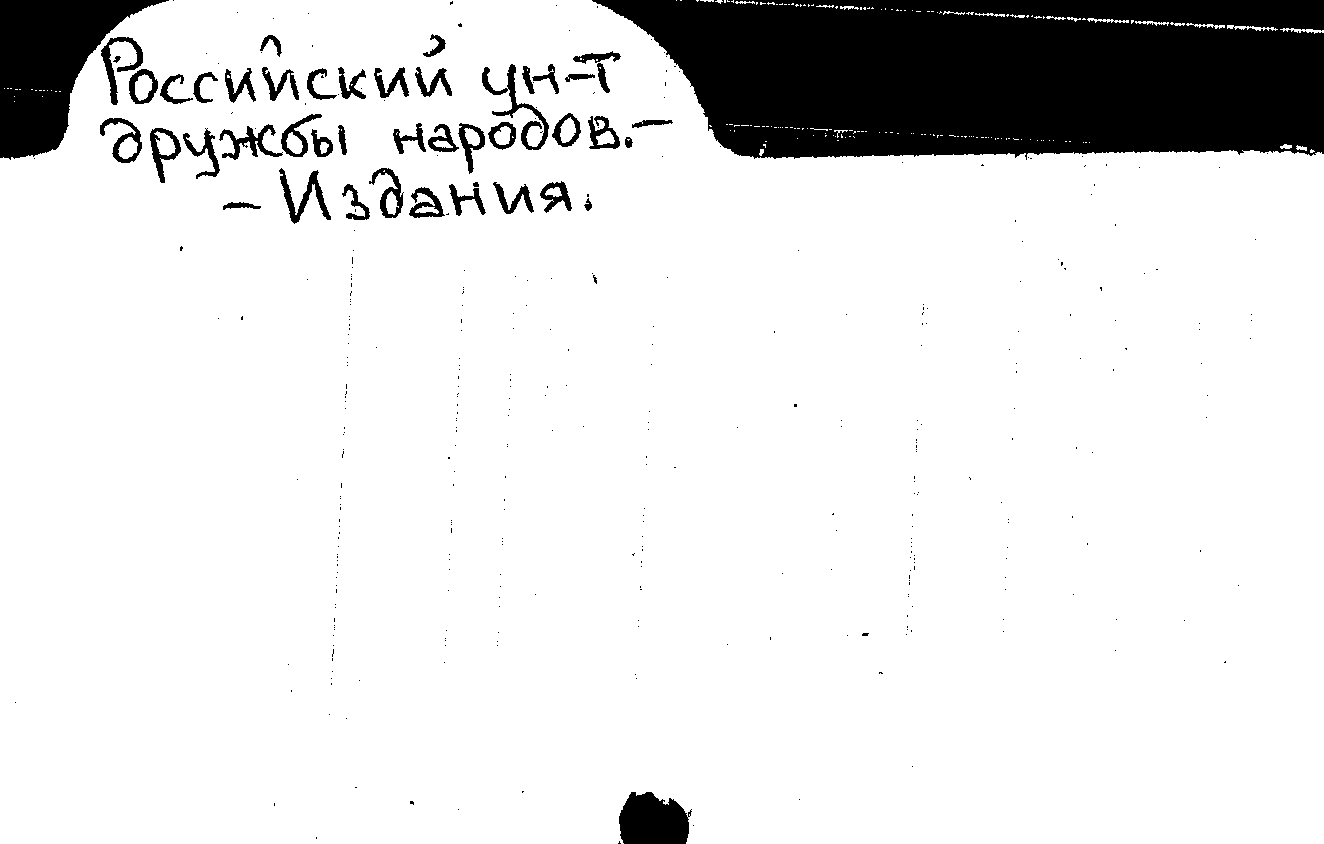 Российский ун-т
дружбы народов.-
- Издания.